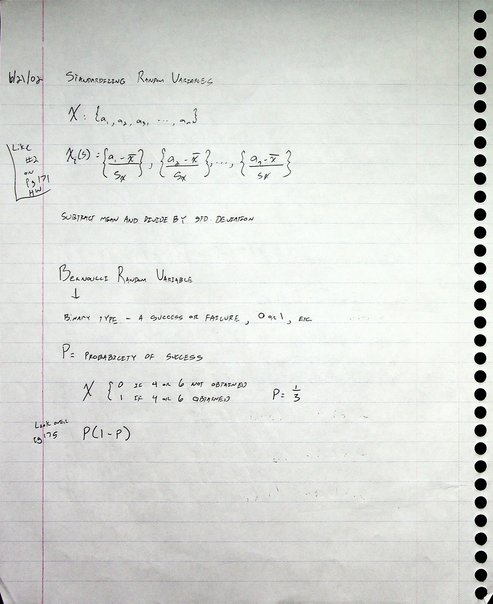 6/21/02 STANDARDIZING RANDOM VARIABLES
X : {a₁, a₂, a₃, ..., aₙ}
LIKE
#2
ON
Pg 171
HW
X₂(s) = {(a₁ - x̄)/Sx}, {(a₂ - x̄)/Sx}, ..., {(aₙ - x̄)/Sx}
SUBTRACT MEAN AND DIVIDE BY STD. DEVIATION
BERNOULLI RANDOM VARIABLE
↓
BINARY TYPE - A SUCCESS OR FAILURE, 0 OR 1, ETC
P = PROBABILITY OF SUCCESS
X { 0 IF 4 OR 6 NOT OBTAINED
1 IF 4 OR 6 OBTAINED P = 1/3
LOOK OVER
Pg 175
P(1-P)